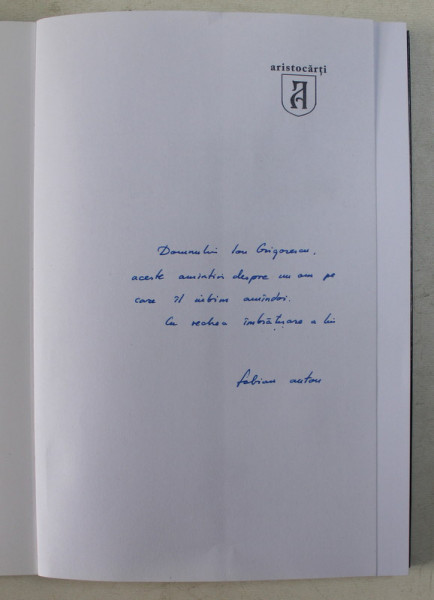 aristocărți
A
Domnului Ion Grigorescu,
aceste amintiri despre un om pe
care îl iubim amîndoi.
Cu vechea îmbrățișare a lui
fabian anton